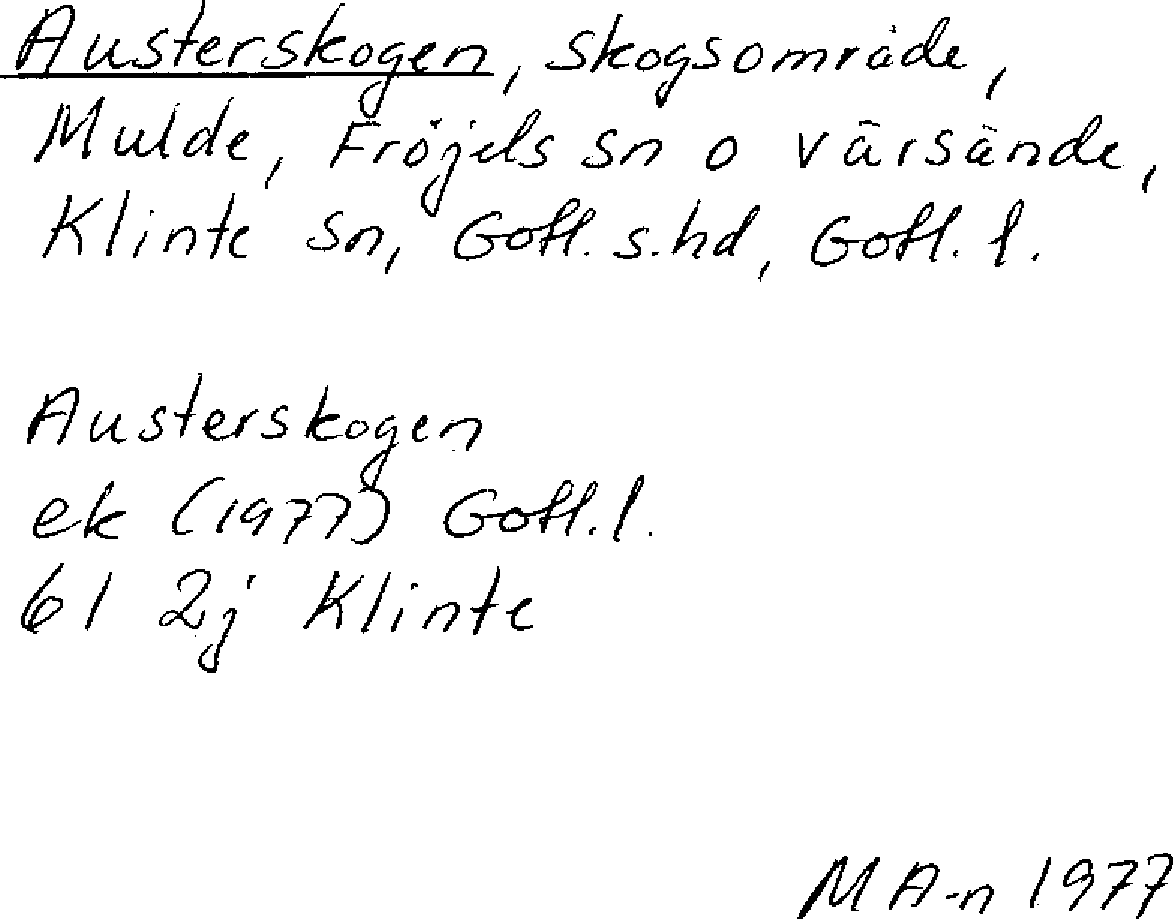 Austerskogen, skogsområde,
Mulde, Fröjels sn o värsände,
Klinte sn, Gotl. s. hd, Gotl. l.
Austerskogen
ek (1977) Gotl. l.
6I 2j Klinte
M A-n 1977